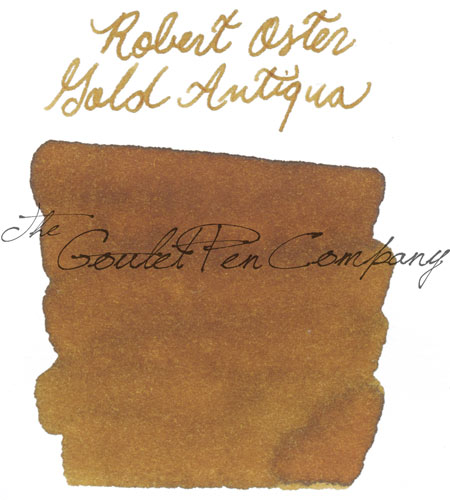 Robert Oster
Gold Antiqua
The Goulet Pen Company